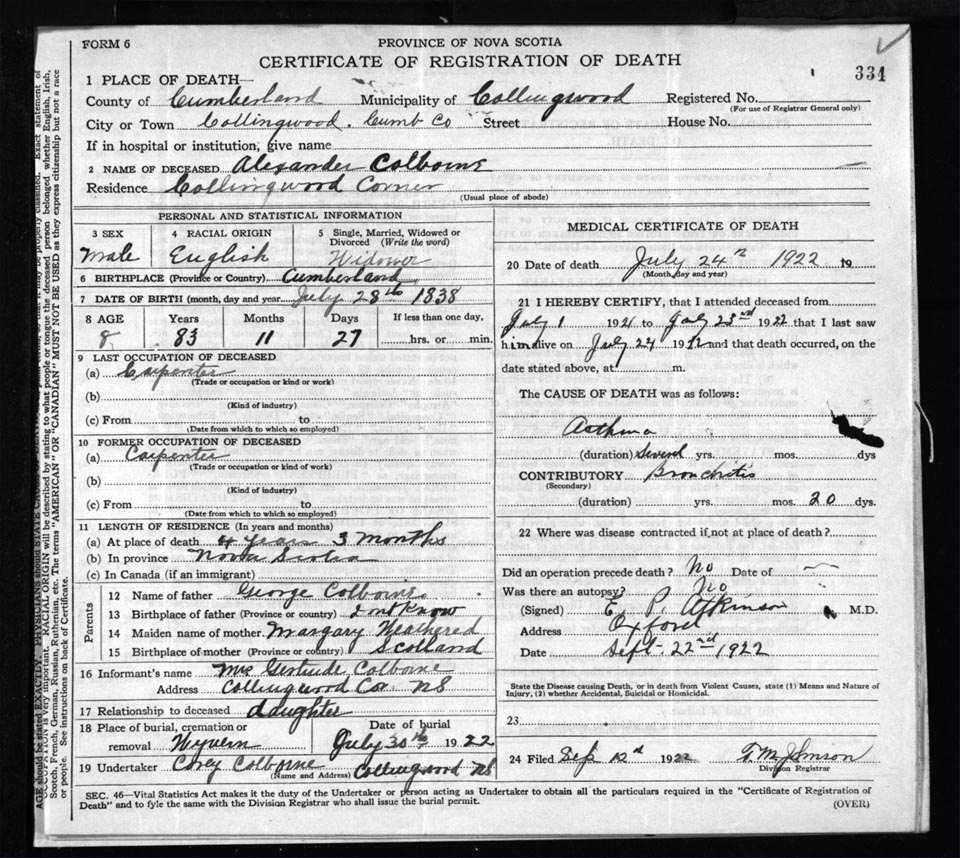 FORM 6
PROVINCE OF NOVA SCOTIA
CERTIFICATE OF REGISTRATION OF DEATH
334
1 PLACE OF DEATH—
County of Cumberland Municipality of Collingwood Registered No.
(For use of Registrar General only)
City or Town Collingwood. Cumb Co Street House No.
If in hospital or institution, give name
2 NAME OF DECEASED Alexander Colborne
Residence Collingwood Corner
(Usual place of abode)
PERSONAL AND STATISTICAL INFORMATION
3 SEX Male
4 RACIAL ORIGIN English
5 Single, Married, Widowed or Divorced (Write the word) Widower
6 BIRTHPLACE (Province or Country) Cumberland
7 DATE OF BIRTH (month, day and year July 28th 1838
8 AGE Years Months Days If less than one day,
8 83 11 27 hrs. or min.
9 LAST OCCUPATION OF DECEASED
(a) Carpenter
(Trade or occupation or kind or work)
(b)
(Kind of industry)
(c) From to
(Date from which to which so employed)
10 FORMER OCCUPATION OF DECEASED
(a) Carpenter
(Trade or occupation or kind or work)
(b)
(Kind of industry)
(c) From to
(Date from which to which so employed)
11 LENGTH OF RESIDENCE (In years and months)
(a) At place of death 4 years 3 months
(b) In province Nova Scotia
(c) In Canada (if an immigrant)
Parents
12 Name of father George Colborne
13 Birthplace of father (Province or country) I not know
14 Maiden name of mother. Margary Weathered
15 Birthplace of mother (Province or country) Scotland
16 Informant's name Mrs Gertrude Colborne
Address Collingwood Cor NS
17 Relationship to deceased daughter
18 Place of burial, cremation or removal Wyvern
Date of burial July 30th 1922
19 Undertaker Corey Colborne Collingwood NS
(Name and Address)
MEDICAL CERTIFICATE OF DEATH
20 Date of death July 24th 1922 19
(Month, day and year)
21 I HEREBY CERTIFY, that I attended deceased from
July 1 1921 to July 23rd 1922 that I last saw
him alive on July 24 1922 and that death occurred, on the
date stated above, at m.
The CAUSE OF DEATH was as follows:
Asthma
(duration) several yrs. mos. dys
CONTRIBUTORY Bronchitis
(Secondary)
(duration) yrs. mos. 20 dys.
22 Where was disease contracted if not at place of death?
Did an operation precede death? No Date of
Was there an autopsy? No
(Signed) E. P. Atkinson M.D.
Address Oxford
Date Sept. 22nd 1922
State the Disease causing Death, or in death from Violent Causes, state (1) Means and Nature of
Injury, (2) whether Accidental, Suicidal or Homicidal.
23
24 Filed Sep 1922 T. M. Johnson
Division Registrar
SEC. 46—Vital Statistics Act makes it the duty of the Undertaker or person acting as Undertaker to obtain all the particulars required in the "Certificate of Registration of
Death" and to fyle the same with the Division Registrar who shall issue the burial permit.
(OVER)